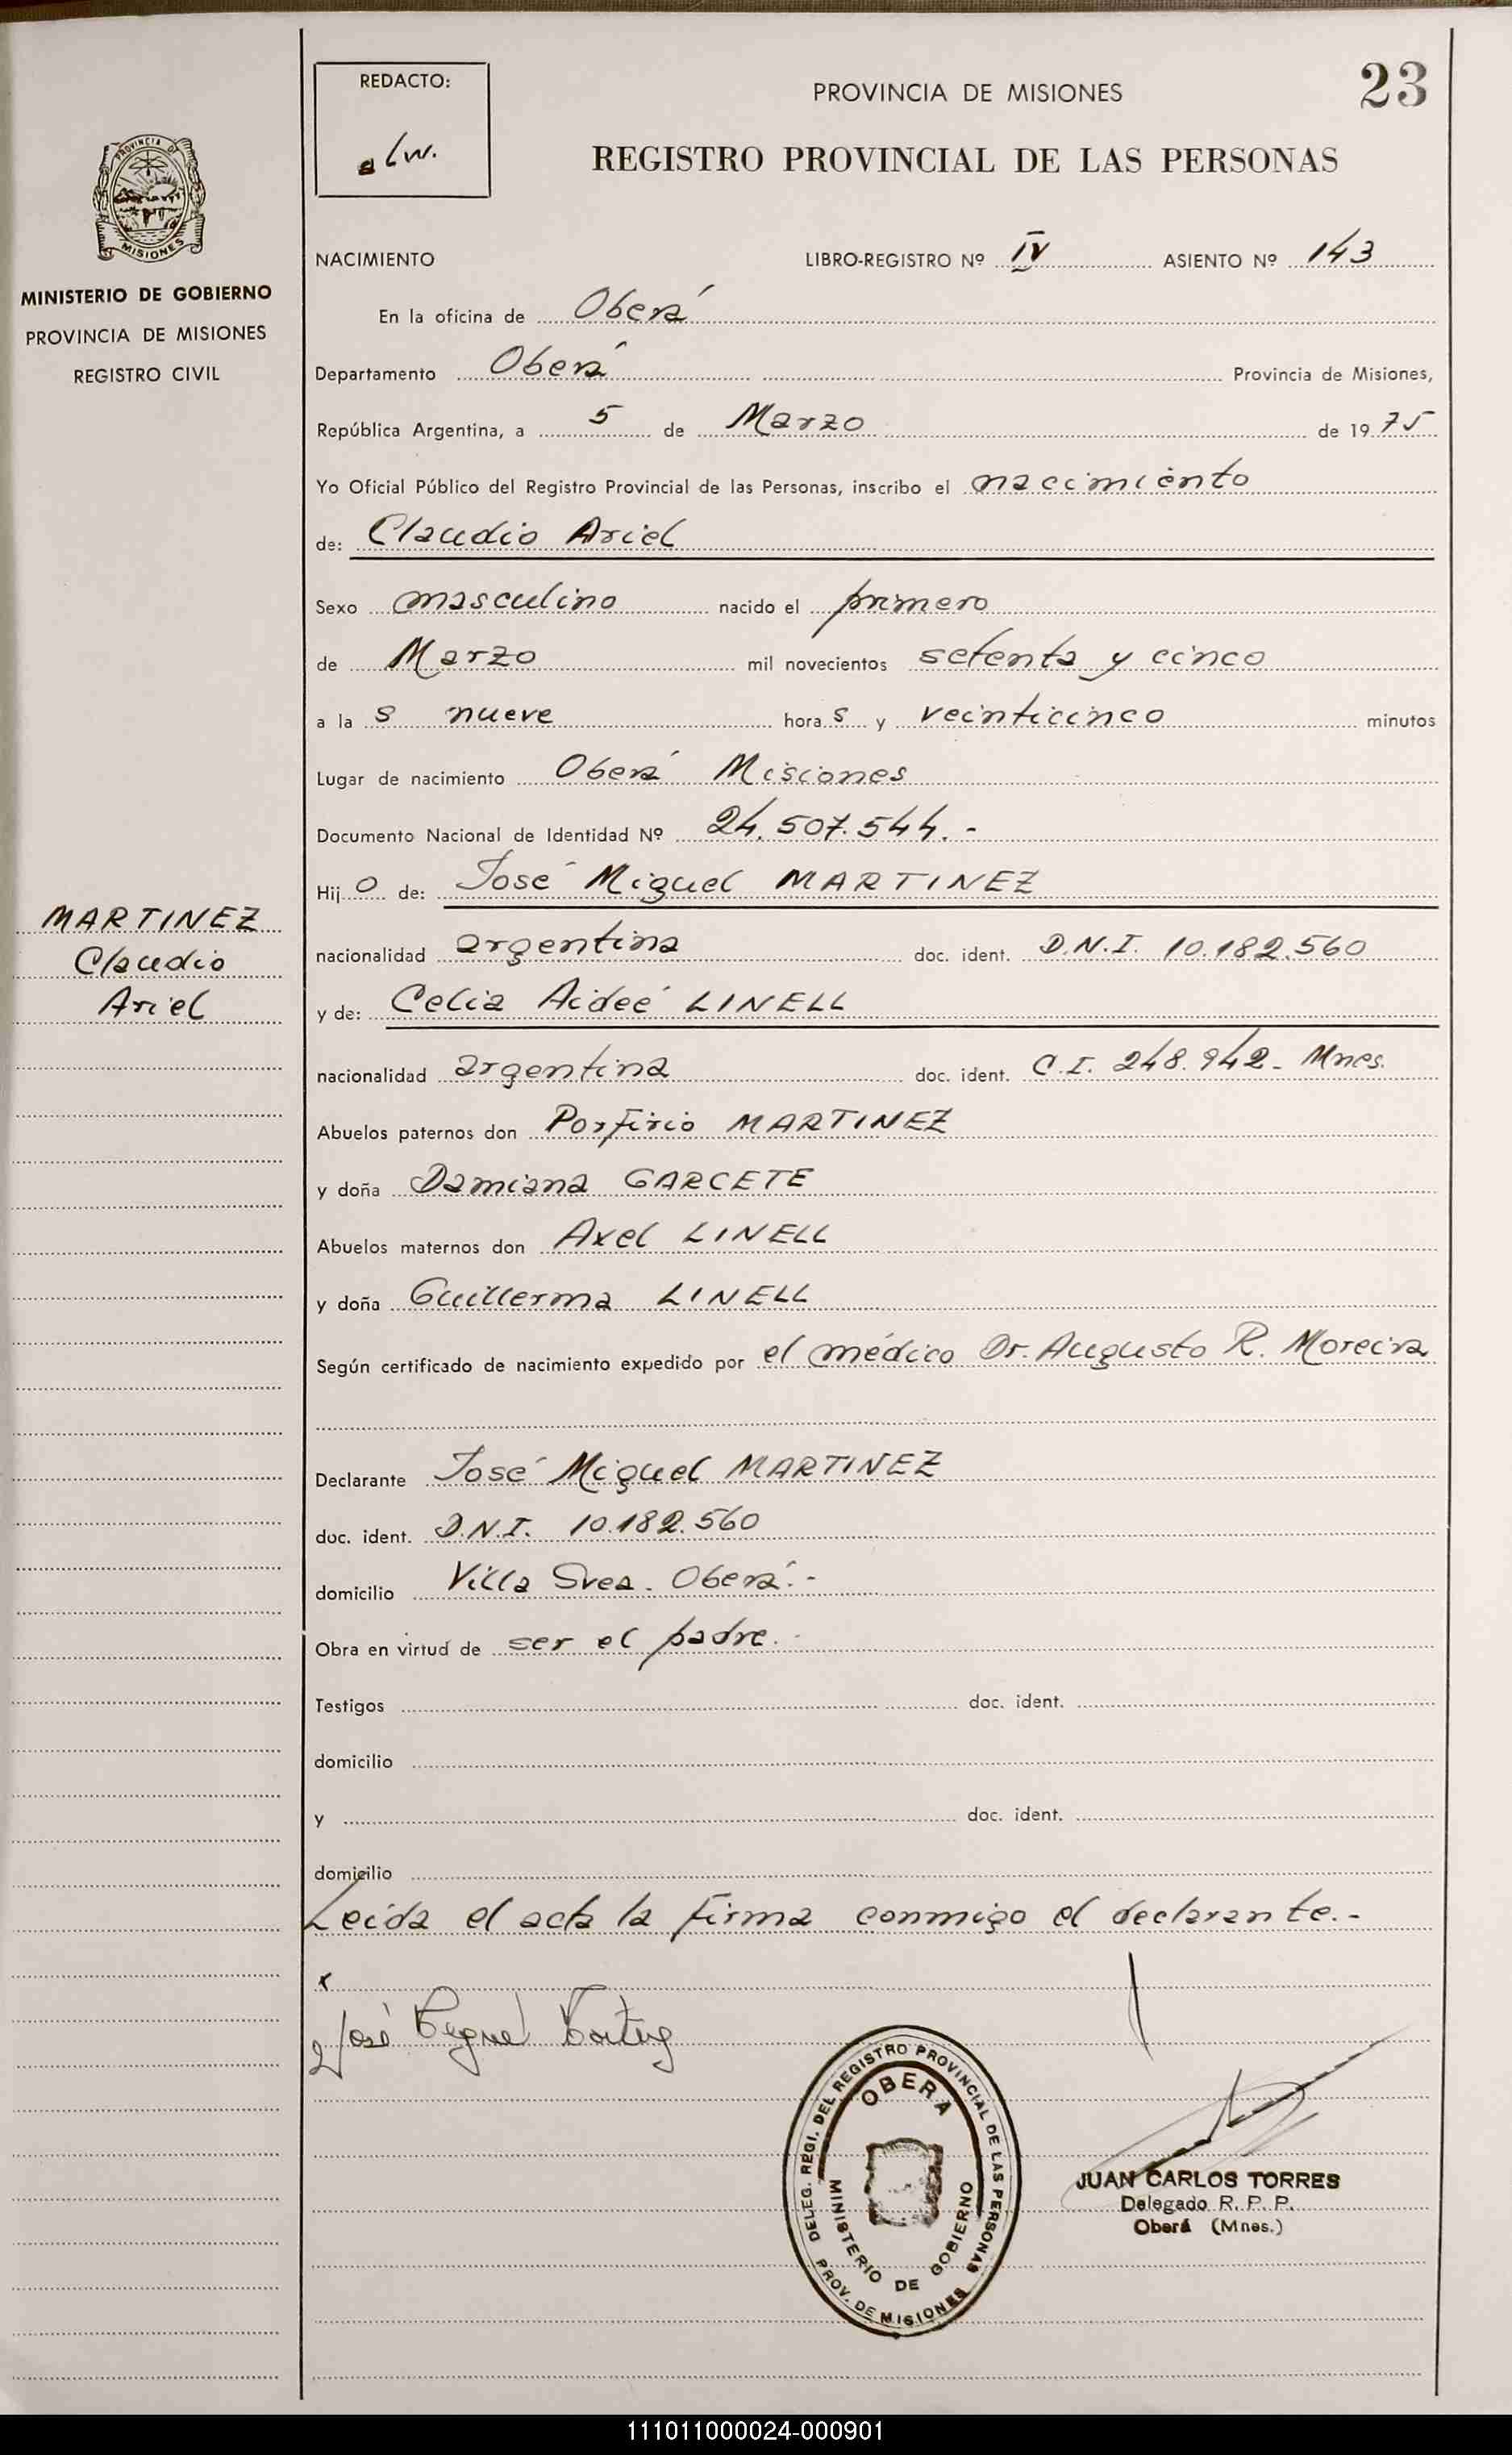 REDACTO:
Lw.
PROVINCIA DE MISIONES
23
REGISTRO PROVINCIAL DE LAS PERSONAS
PROVINCIA DE
MISIONES
MINISTERIO DE GOBIERNO
PROVINCIA DE MISIONES
REGISTRO CIVIL
NACIMIENTO LIBRO-REGISTRO Nº IV ASIENTO Nº 143
En la oficina de Oberá
Departamento Oberá Provincia de Misiones,
República Argentina, a 5 de Marzo de 1975
Yo Oficial Público del Registro Provincial de las Personas, inscribo el nacimiento
de: Claudio Ariel
Sexo masculino nacido el primero
de Marzo mil novecientos setenta y cinco
a la s nueve hora s y veinticinco minutos
Lugar de nacimiento Oberá Misiones
Documento Nacional de Identidad Nº 24.507.544.-
Hij o de: José Miguel MARTINEZ
MARTINEZ
Claudio
Ariel
nacionalidad argentina doc. ident. D.N.I. 10.182.560
y de: Celia Aideé LINELL
nacionalidad argentina doc. ident. C.I. 248.942- Mnes.
Abuelos paternos don Porfirio MARTINEZ
y doña Damiana GARCETE
Abuelos maternos don Axel LINELL
y doña Guillerma LINELL
Según certificado de nacimiento expedido por el médico Dr. Augusto R. Moreira
Declarante José Miguel MARTINEZ
doc. ident. D.N.I. 10.182.560
domicilio Villa Svea. Oberá.-
Obra en virtud de ser el padre.-
Testigos doc. ident.
domicilio
y doc. ident.
domicilio
Leída el acta la firma conmigo el declarante.-
x
José
DELEG. REGI. DEL REGISTRO PROVINCIAL DE LAS PERSONAS
OBERA
MINISTERIO DE GOBIERNO
PROV. DE MISIONES
JUAN CARLOS TORRES
Delegado R. P. P.
Oberá (Mnes.)
111011000024-000901